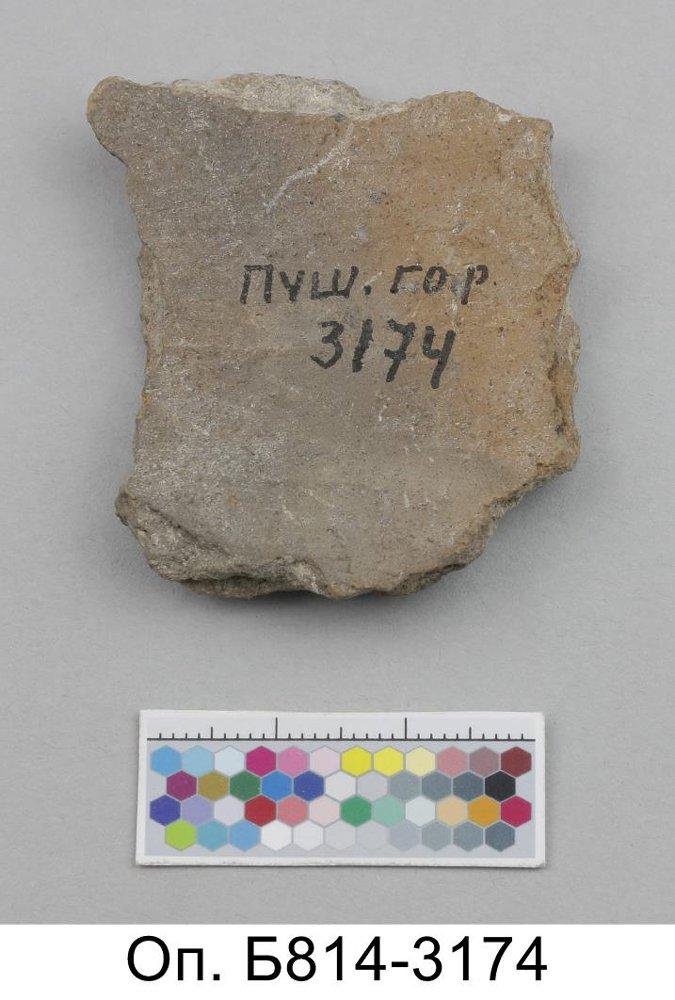 ПУШ. ГОР
3174
Оп. Б814-3174